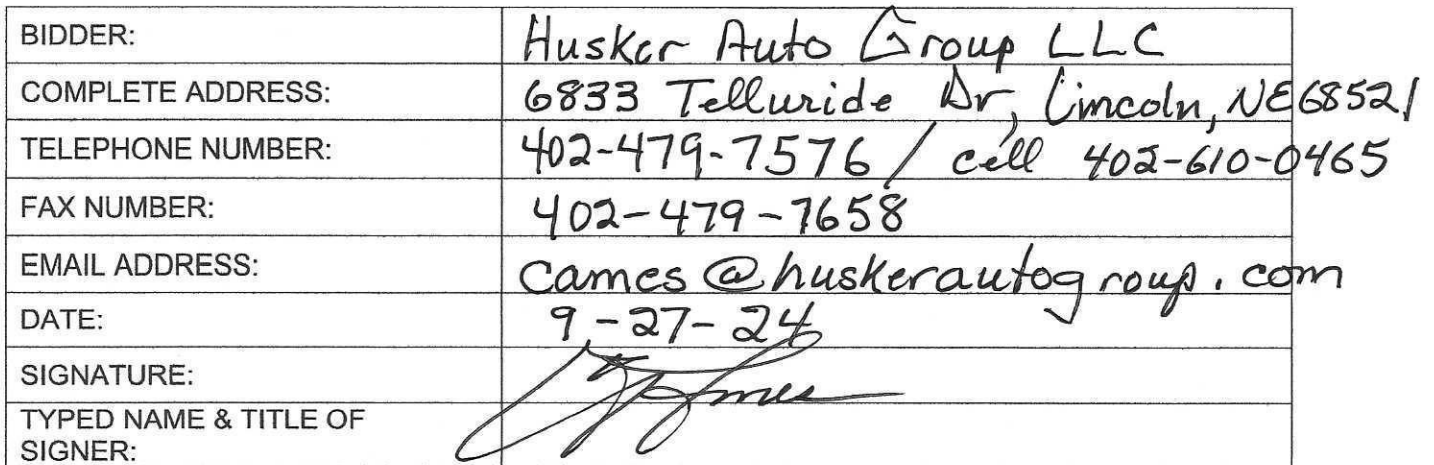 BIDDER: Husker Auto Group LLC
COMPLETE ADDRESS: 6833 Telluride Dr, Lincoln, NE 68521
TELEPHONE NUMBER: 402-479-7576 / cell 402-610-0465
FAX NUMBER: 402-479-7658
EMAIL ADDRESS: cames@huskerautogroup.com
DATE: 9-27-24
SIGNATURE:
TYPED NAME & TITLE OF
SIGNER: